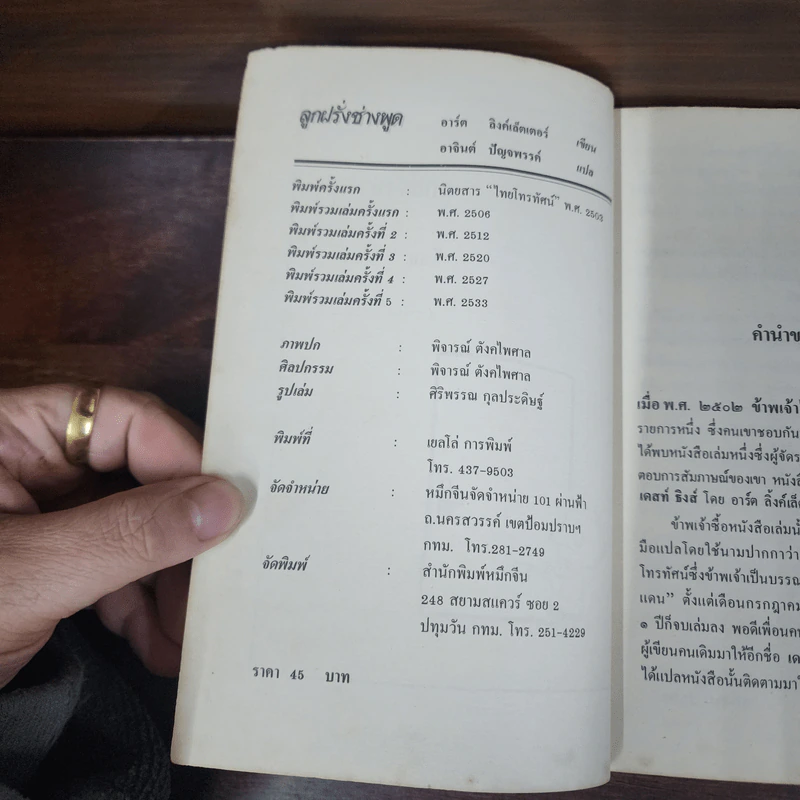 ลูกฝรั่งช่างพูด อาร์ต ลิงค์เล็ตเตอร์ เขียน
อาจินต์ ปัญจพรรค์ แปล
พิมพ์ครั้งแรก : นิตยสาร “ไทยโทรทัศน์” พ.ศ. 2503
พิมพ์รวมเล่มครั้งแรก : พ.ศ. 2506
พิมพ์รวมเล่มครั้งที่ 2 : พ.ศ. 2512
พิมพ์รวมเล่มครั้งที่ 3 : พ.ศ. 2520
พิมพ์รวมเล่มครั้งที่ 4 : พ.ศ. 2527
พิมพ์รวมเล่มครั้งที่ 5 : พ.ศ. 2533
ภาพปก : พิจารณ์ ตังคไพศาล
ศิลปกรรม : พิจารณ์ ตังคไพศาล
รูปเล่ม : ศิริพรรณ กุลประดิษฐ์
พิมพ์ที่ : เยลโล่ การพิมพ์
โทร. 437-9503
จัดจำหน่าย : หมึกจีนจัดจำหน่าย 101 ผ่านฟ้า
ถ.นครสวรรค์ เขตป้อมปราบฯ
กทม. โทร.281-2749
จัดพิมพ์ : สำนักพิมพ์หมึกจีน
248 สยามสแควร์ ซอย 2
ปทุมวัน กทม. โทร. 251-4229
ราคา 45 บาท
คำนำข
เมื่อ พ.ศ. ๒๕๐๒ ข้าพเจ้าไ
รายการหนึ่ง ซึ่งคนเขาชอบกัน
ได้พบหนังสือเล่มหนึ่งซึ่งผู้จัดร
ตอบการสัมภาษณ์ของเขา หนังสื
เดสท์ ธิงส์ โดย อาร์ต ลิ้งค์เล็ต
ข้าพเจ้าซื้อหนังสือเล่มนั้
มือแปลโดยใช้นามปากกาว่า
โทรทัศน์ซึ่งข้าพเจ้าเป็นบรรณ
แดน” ตั้งแต่เดือนกรกฎาคม
๑ ปีก็จบเล่มลง พอดีเพื่อนค
ผู้เขียนคนเดิมมาให้อีกชื่อ เด
ได้แปลหนังสือนั้นติดตามมาใ